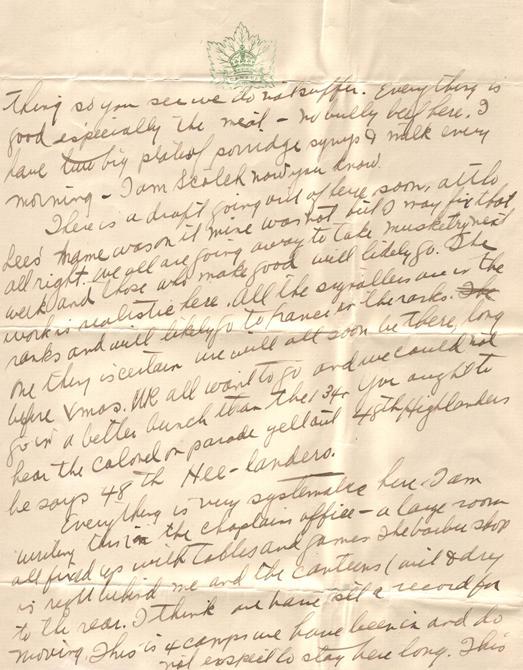 CANADA
thing so you see we do not suffer. Everything is
good especially the meat - no bully beef here. I
have two big plates of porridge syrup & milk every
morning - I am Scotch now you know.
There is a draft going out of here soon,
Lees' name was on it mine was not but I may fix that
all right. We all are going away to take musketry next
week and those who make good will likely go. The
work is realistic here. All the signallers are in the
ranks and will likely go to France in the ranks. The
one thing is certain we will all soon be there, long
before Xmas. We all want to go and we could not
go in a better bunch than the 134. You ought to
hear the Colonel on parade yell out 48th Highlanders
he says 48th Hee-landers.
Everything is very systematic here. I am
writing this in the chaplains office - a large room
all fixed up with tables and games. The barber shop
is right behind me and the canteens (wet & dry
to the rear. I think we have set a record for
moving. This is 4 camps we have been in and do
not expect to stay here long. This